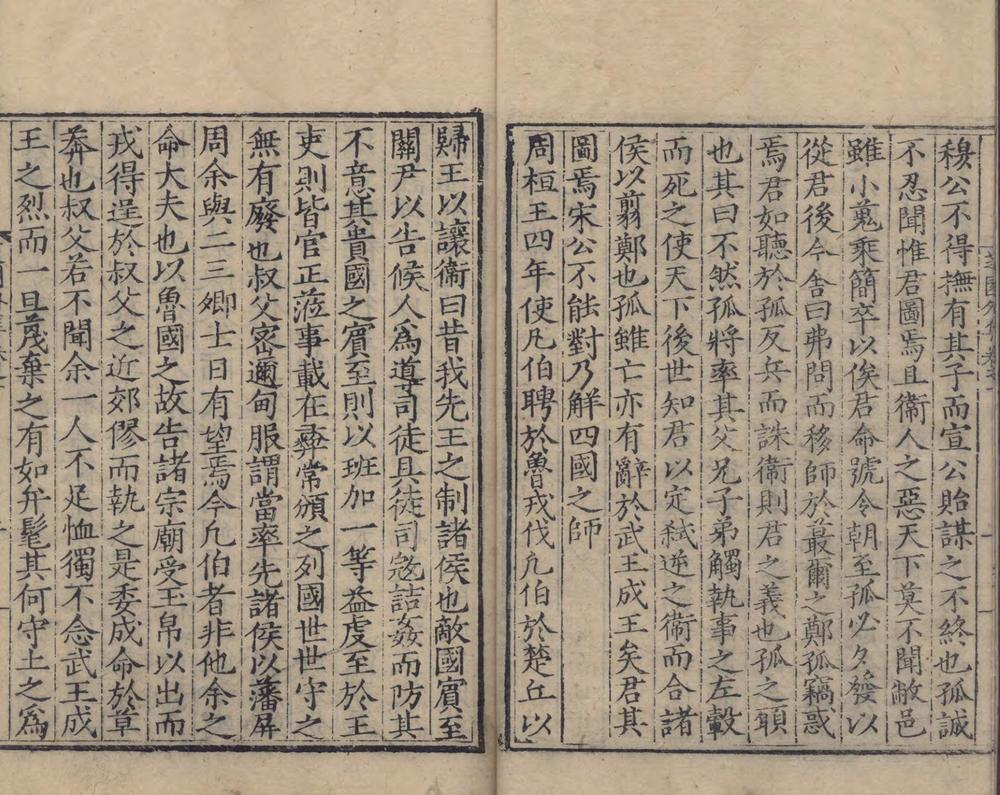 穆公不得撫有其子而宣公貽謀之不終也孤誠
不忍聞惟君圖焉且衞人之惡天下莫不聞敝邑
雖小蒐乘簡卒以俟君命號令朝至孤必夕發以
從君後今舍曰弗問而移師於蕞爾之鄭孤竊惑
焉君如聽於孤反兵而誅衞則君之義也孤之願
也其曰不然孤將率其父兄子弟觸執事之左轂
而死之使天下後世知君以定弑逆之衞而合諸
侯以翦鄭也孤雖亡亦有辭於武王成王矣君其
圖焉宋公不能對乃解四國之師
周桓王四年使凡伯聘於魯戎伐凡伯於楚丘以
歸王以讓衞曰昔我先王之制諸侯也敵國賓至
關尹以告候人爲導司徒具徒司寇詰姦而防其
不意其貴國之賓至則以班加一等益虔至於王
吏則皆官正蒞事載在彝常頒之列國世世守之
無有廢也叔父密邇甸服謂當率先諸侯以藩屏
周余與一二三卿士日有望焉今凡伯者非他余之
命大夫也以魯國之故告諸宗廟受玉帛以出而
戎得逞於叔父之近郊僇而執之是委成命於草
莽也叔父若不聞余一人不足恤獨不念武王成
王之烈而一旦蔑棄之有如弁髦其何守土之爲